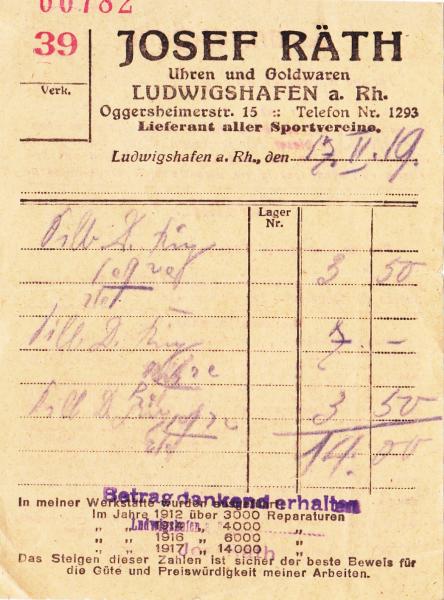 00782
39
Verk.
JOSEF RÄTH
Uhren und Goldwaren
LUDWIGSHAFEN a. Rh.
Oggersheimerstr. 15 :: Telefon Nr. 1293
Lieferant aller Sportvereine.
Ludwigshafen a. Rh., den 17. II. 19.
Lager Nr.
Silb. D. Ring
3 50
Silb. D. Ring
7. –
Silb. D. Ring
3 50
14. 00
Betrag dankend erhalten
In meiner Werkstätte wurden
Im Jahre 1912 über 3000 Reparaturen
„ „ 1914 „ 4000 „
Ludwigshafen,
„ „ 1916 „ 6000 „
„ „ 1917 „ 14000 „
Das Steigen dieser Zahlen ist sicher der beste Beweis für
die Güte und Preiswürdigkeit meiner Arbeiten.